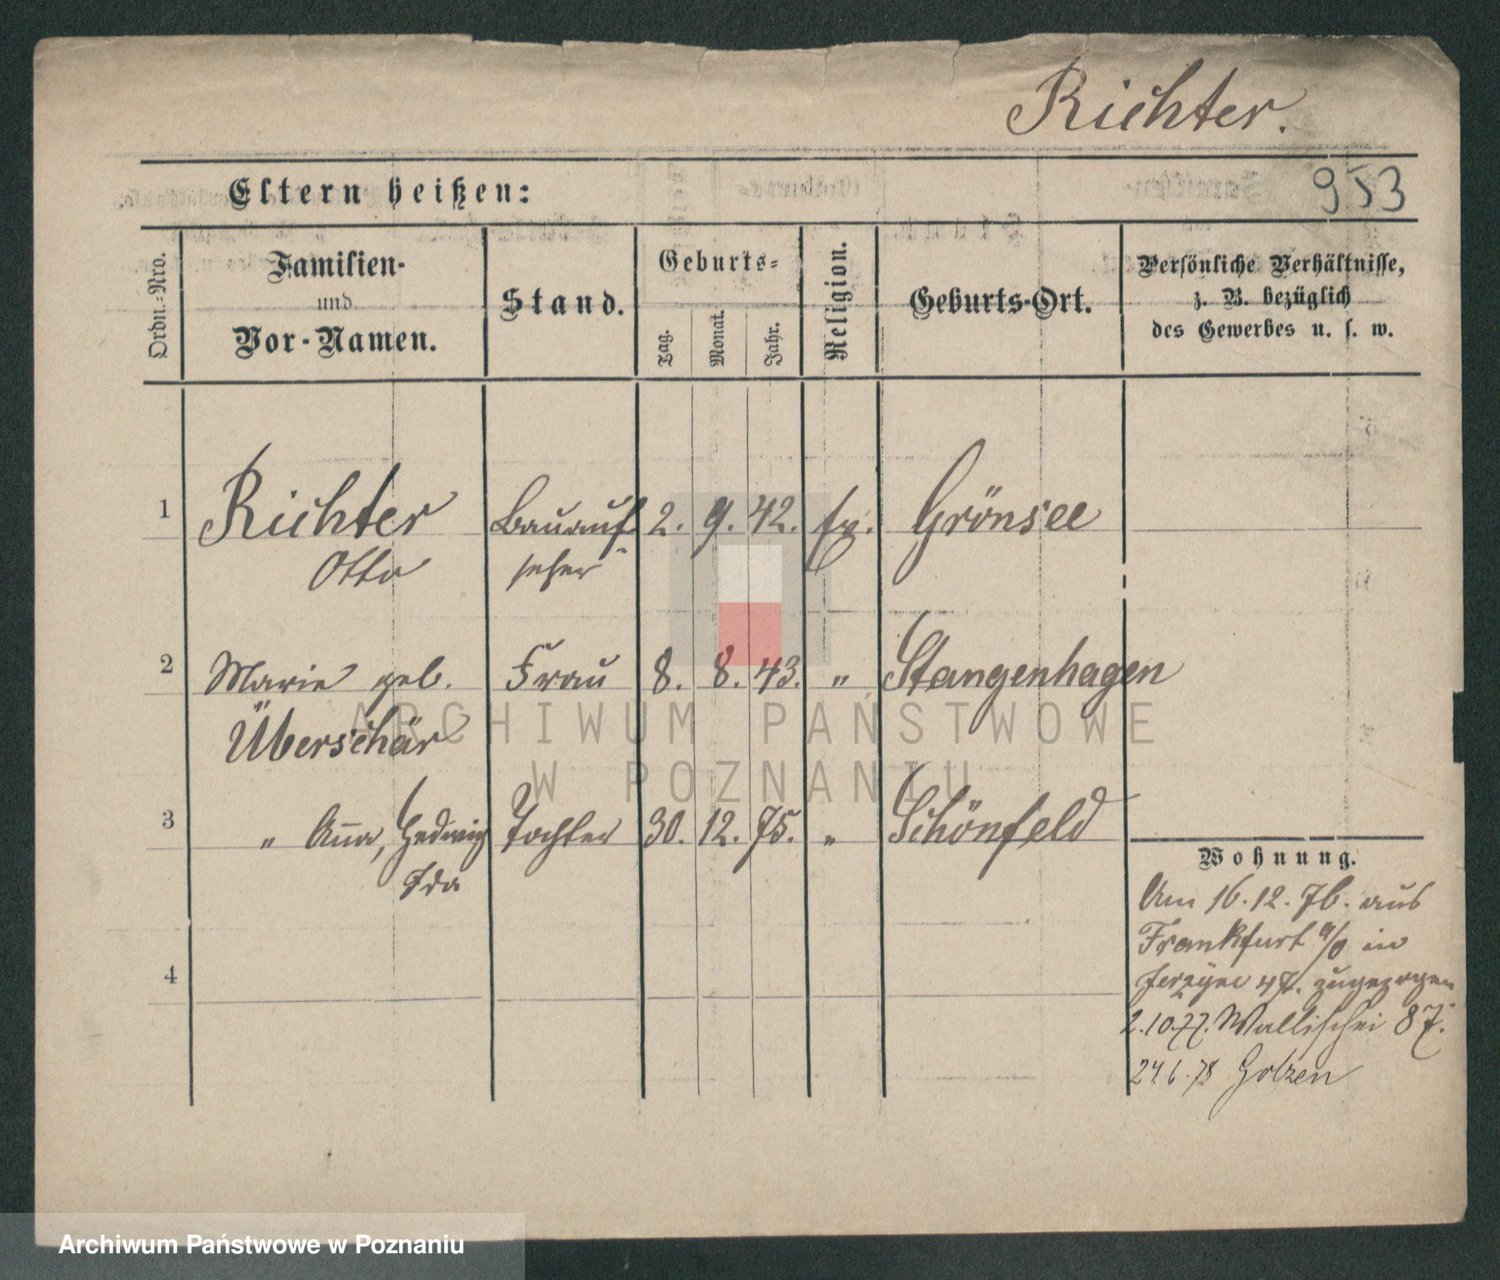 Richter.
953
Eltern heißen:
Ordn.-Nro.
Familien-
und
Vor-Namen.
Stand.
Geburts-
Tag.
Monat.
Jahr.
Religion.
Geburts-Ort.
Persönliche Verhältnisse,
z. B. bezüglich
des Gewerbes u. s. w.
1 Richter Bauauf 2. 9. 42. Grönsee
Otto seher
2 Marie geb. Frau 8. 8. 43. " Stangenhagen
Überschär
3 " Anna, Hedwig Tochter 30. 12. 75. " Schönfeld
Ida
4
Wohnung.
Am 16.12.76. aus
Frankfurt a/O in
zugezogen
2.10.77. Wallischei 87.
24.6.78
ARCHIWUM PAŃSTWOWE
W POZNANIU
Archiwum Państwowe w Poznaniu